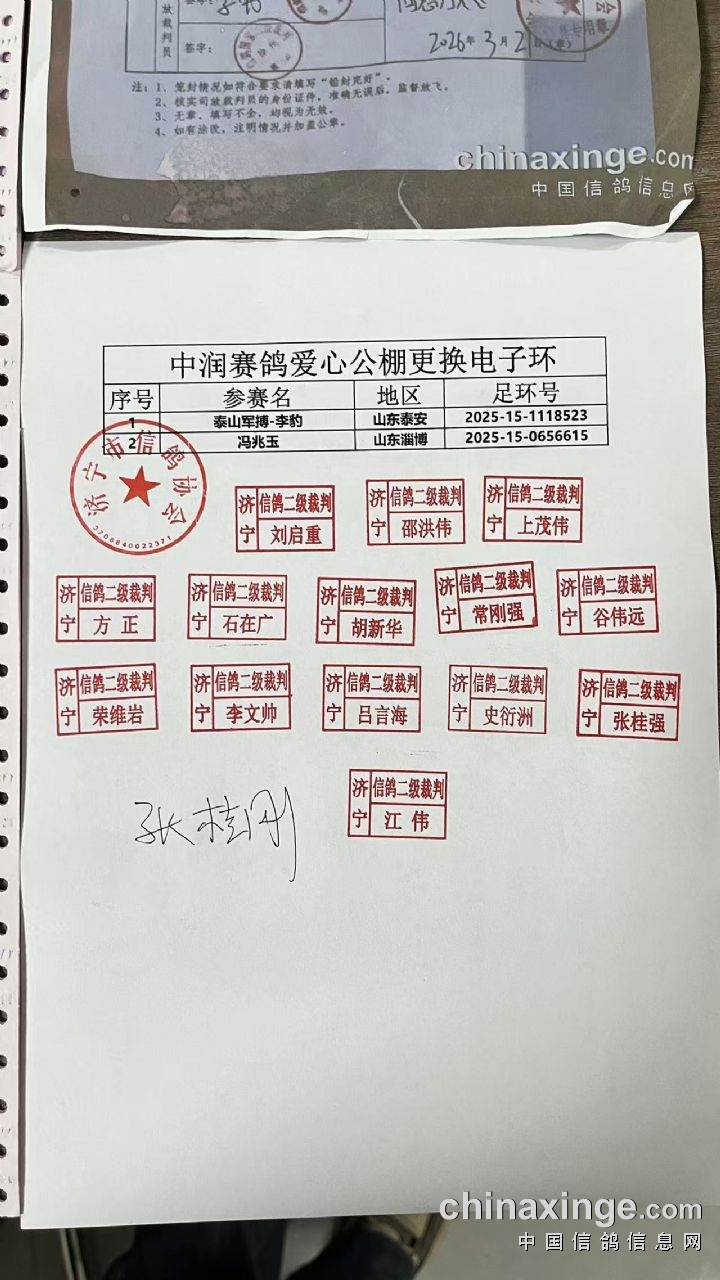 放裁判员
签字：
2026年3月21日（章）
专用章
注：1、笼封情况如符合要求请填写“铅封完好”。
2、核实司放裁判员的身份证件，准确无误后，监督放飞。
3、无章、填写不全，均视为无效。
4、如有涂改，注明情况并加盖公章。
chinaxinge.com
中国信鸽信息网
中润赛鸽爱心公棚更换电子环
序号 参赛名 地区 足环号
1 泰山军搏-李豹 山东泰安 2025-15-1118523
2 冯兆玉 山东淄博 2025-15-0656615
济宁市信鸽协会
3708840022371
济宁 信鸽二级裁判 刘启重
济宁 信鸽二级裁判 邵洪伟
济宁 信鸽二级裁判 上茂伟
济宁 信鸽二级裁判 方正
济宁 信鸽二级裁判 石在广
济宁 信鸽二级裁判 胡新华
济宁 信鸽二级裁判 常刚强
济宁 信鸽二级裁判 谷伟远
济宁 信鸽二级裁判 荣维岩
济宁 信鸽二级裁判 李文帅
济宁 信鸽二级裁判 吕言海
济宁 信鸽二级裁判 史衍洲
济宁 信鸽二级裁判 张桂强
济宁 信鸽二级裁判 江伟
张桂刚
chinaxinge.com
中国信鸽信息网